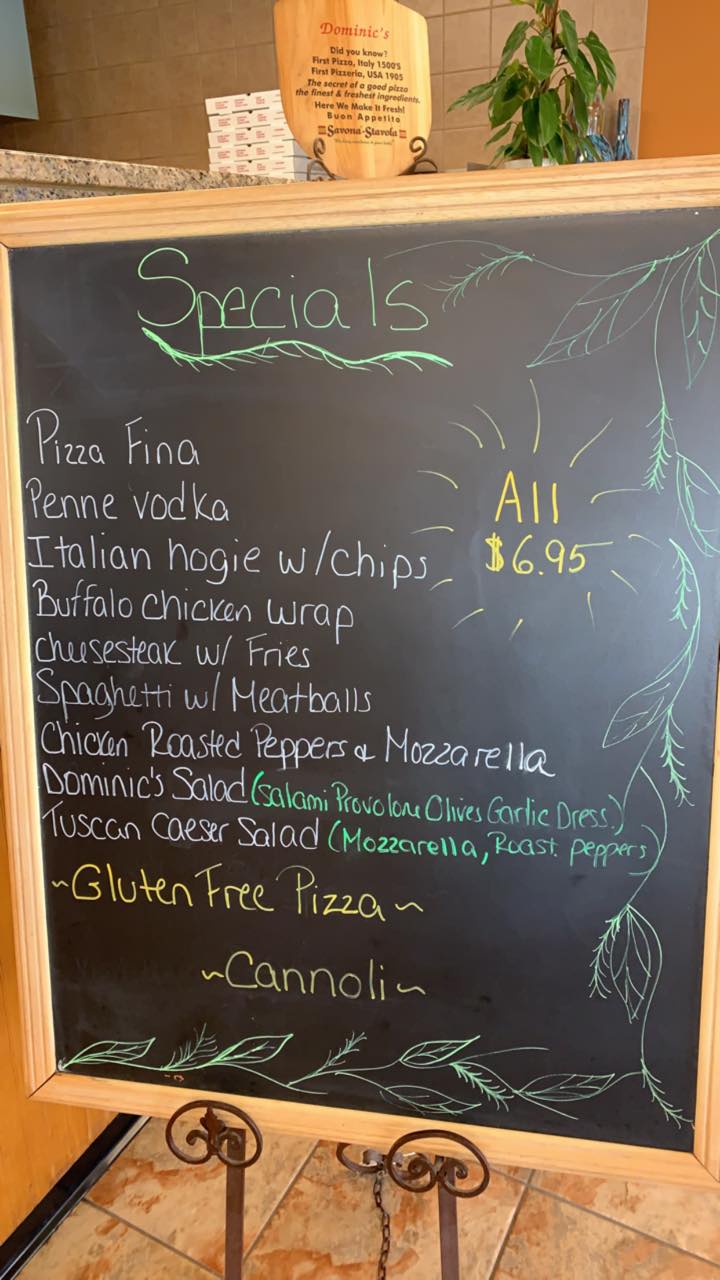 Dominic's
Did you know?
First Pizza, Italy 1500'S
First Pizzeria, USA 1905
The secret of a good pizza
the finest & freshest ingredients.
Here We Make It Fresh!
Buon Appetito
Savona-Stavola
Specials
Pizza Fina
Penne vodka
Italian hogie w/chips
Buffalo chicken wrap
cheesesteak w/ Fries
Spaghetti w/ Meatballs
Chicken Roasted Peppers & Mozzarella
Dominic's Salad (Salami Provolone Olives Garlic Dress.)
Tuscan Caeser Salad (Mozzarella, Roast. peppers)
All
$6.95
~Gluten Free Pizza~
~Cannoli~